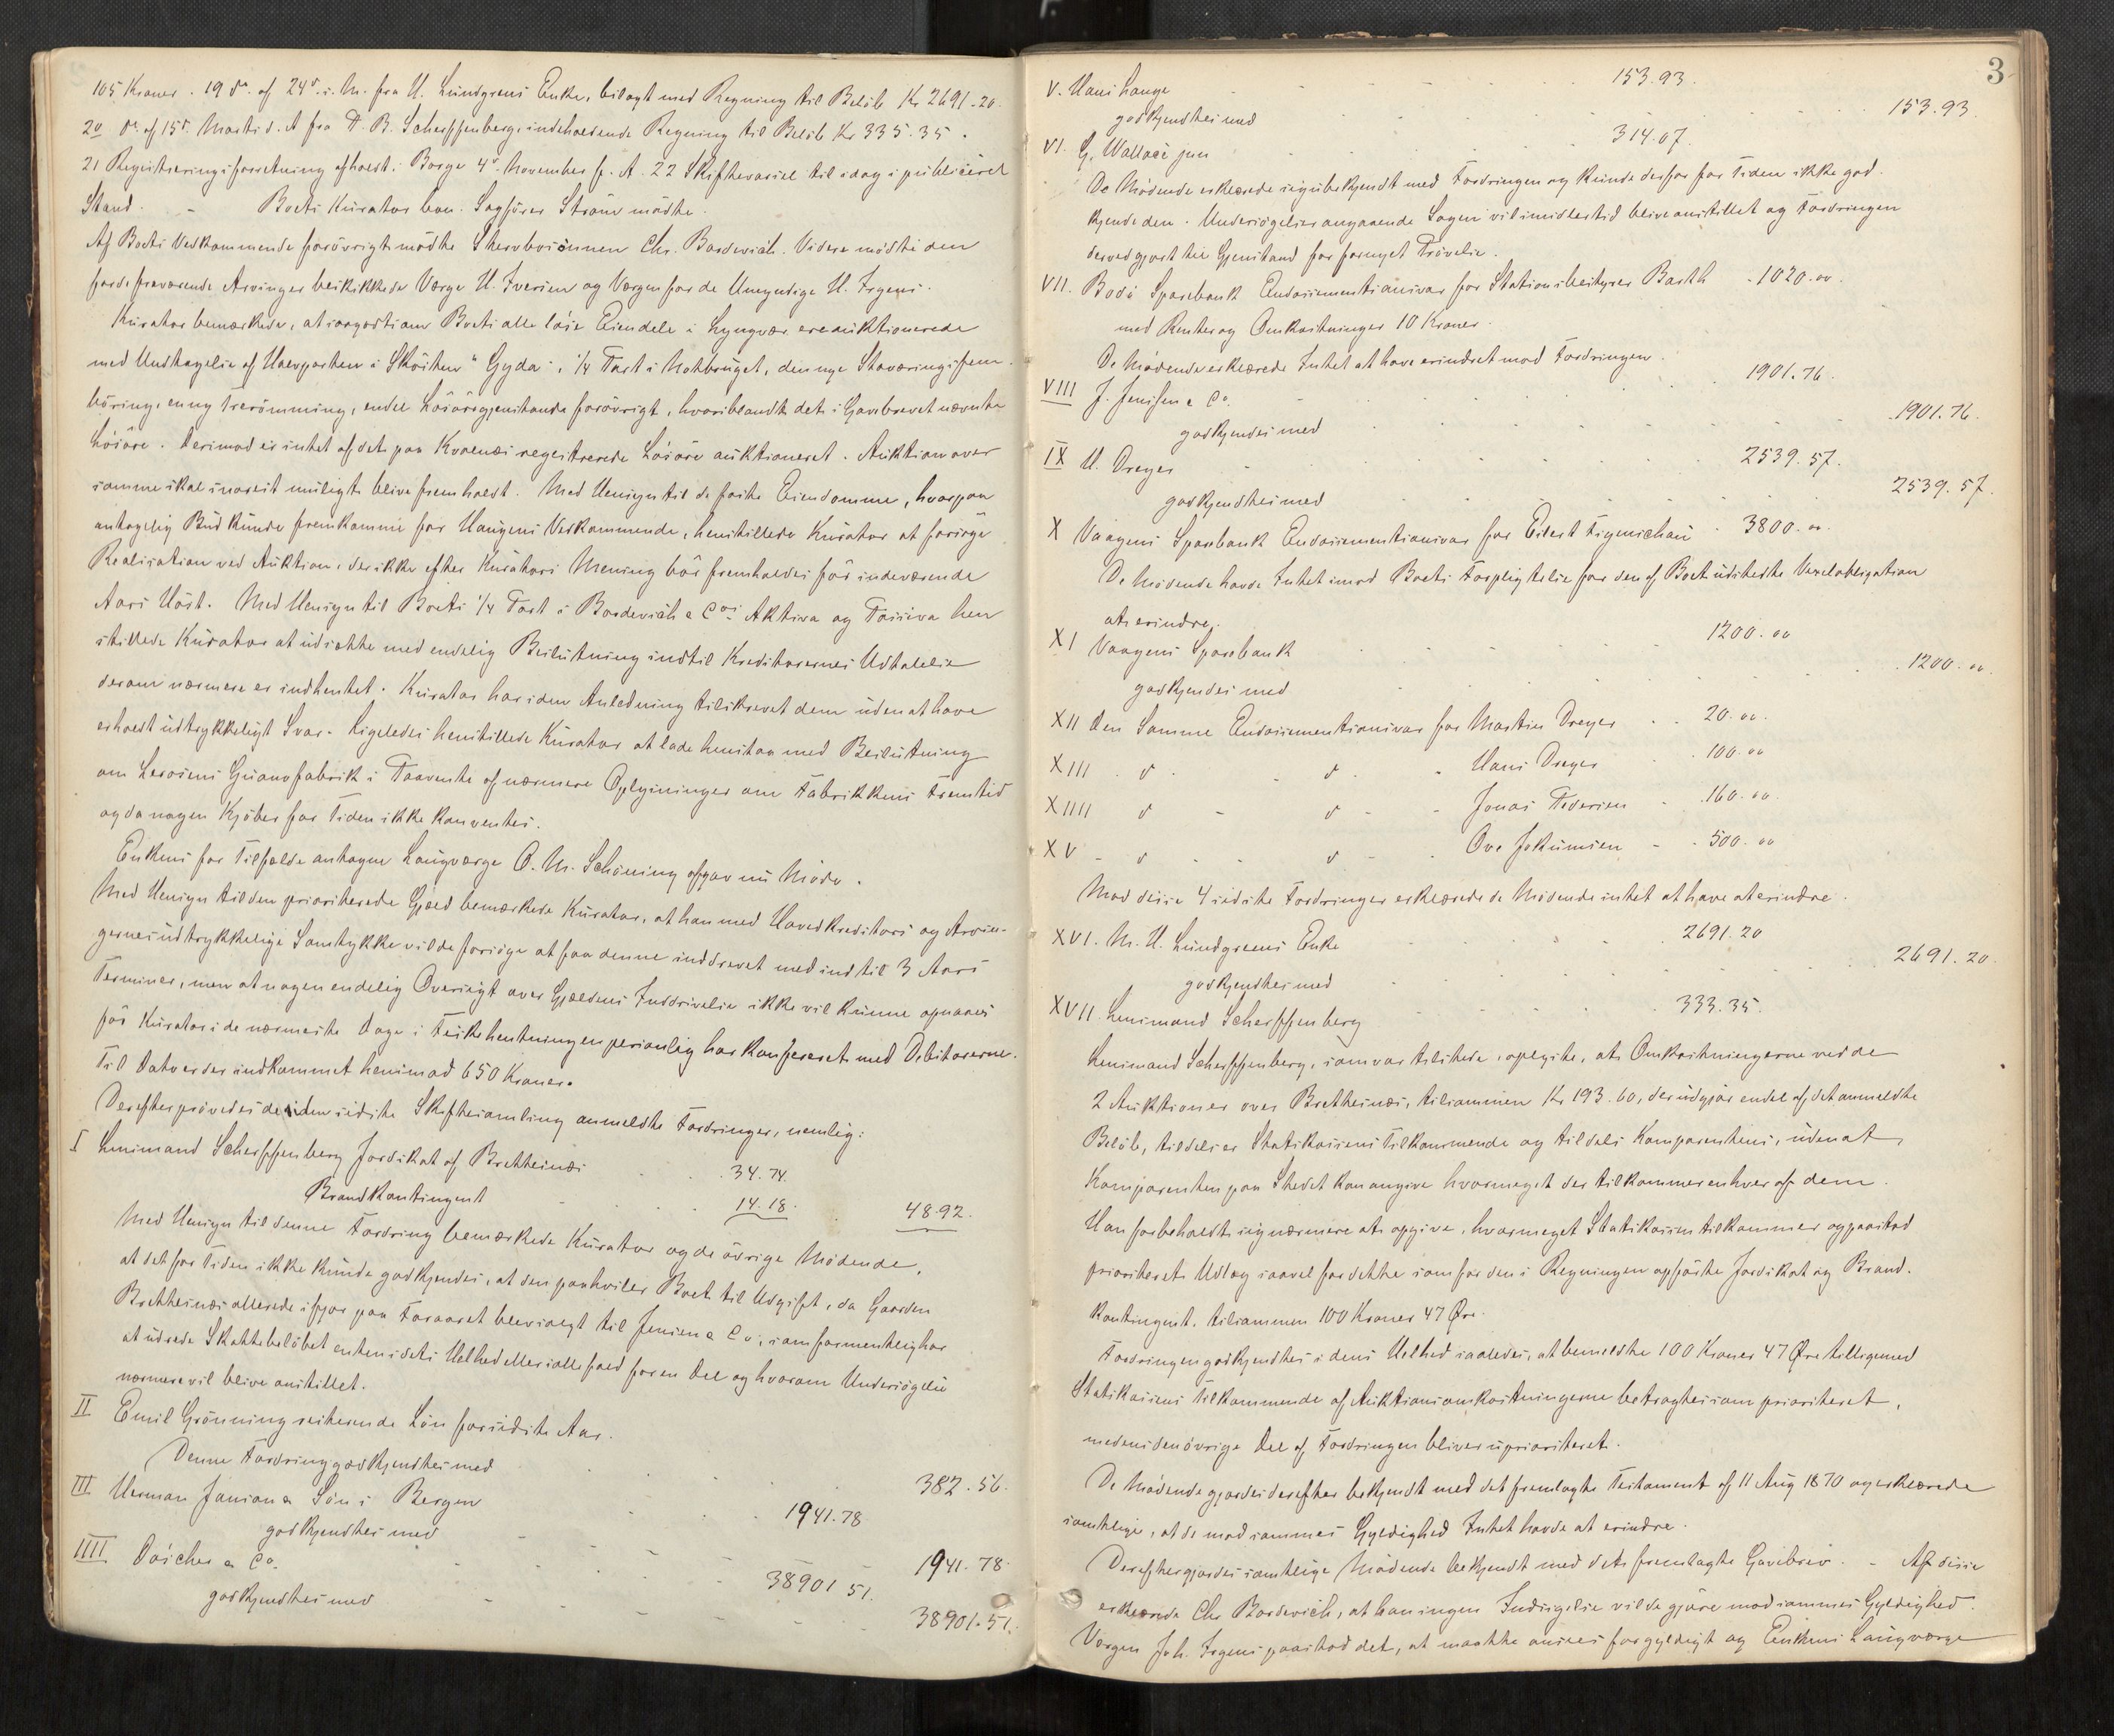 105 Kroner. 19 do. af 24de. s. M. fra U. Lundgrens Enke, bilagt med Regning til Beløb Kr 2691.20.
20 do. af 15de. Marts d. A fra D. B. Scherffenberg, indeholdende Regning til Beløb Kr 335.35.
21 Registreringsforretning afholdt i Borge 4de. November f. A. 22 Skiftevarsel til idag i publiceret
Stand. - Boets Kurator con. Sagfører Strøm mødte.
Af Boets Vedkommende forøvrigt mødte Stervboinnen Chr. Bordevich. Videre mødte den
for de fraværende Arvinger beskikkede Værge H. Iversen og Værgen for de Umyndige H. Irgens.
Kurator bemærkede, at saagodtsom Boets alle løse Eiendele i Lyngvær ere auktionerede
med Undtagelse af Halvparten i Skøiten "Gyda", 1/4 Part i Notbruget, den nye Storværingsfem-
børing, en ny Treromming, endel Løsøregjenstande forøvrigt, hvoriblandt det i Gavebrevet nævnte
Løsøre. Derimod er intet af det paa Kvalnæs registrerede Løsøre auktioneret. Auktion over
samme skal snarest muligt blive fremholdt. Med Hensyn til de faste Eiendomme, hvorpaa
antagelig Bud kunde fremkomme for Haugens Vedkommende, henstillede Kurator at forsøge
Realisation ved Auktion, der ikke efter Kurators Mening bør fremholdes før indeværende
Aars Høst. Med Hensyn til Boets 1/4 Part i Bordevich & Cos Aktiva og Passiva hen
stillede Kurator at udsætte med endelig Beslutning indtil Kreditorernes Udtalelse
derom nærmere er indhentet. Kurator har i den Anledning tilskrevet dem uden at have
erholdt udtrykkeligt Svar. Ligeledes henstillede Kurator at lade henstaa med Beslutning
om Lerosens Guanofabrik i Paavente af nærmere Oplysninger om Fabrikkens Fremtid
og da nogen Kjøber for Tiden ikke kan ventes.
Enkens for Tilfælde antagne Laugværge O. M. Schøning afgav nu Møde.
Med Hensyn til den prioriterede Gjæld bemærkede Kurator, at han med Hovedkreditors og Arvin-
gernes udtrykkelige Samtykke vilde forsøge at faa denne inddrevet med indtil 3 Aars
Terminer, men at nogen endelig Oversigt over Gjældens Inddrivelse ikke vil kunne opnaaes
før Kurator i de nærmeste Dage i Fiskehentningen personlig har konfereret med Debitorerne.
Til Dato er der indkommet henimod 650 Kroner.
Derefter prøvedes de siden sidste Skiftesamling anmeldte Fordringer, nemlig:
I Lensmand Scherffenberg Jordskat af Brettesnæs 34.74.
Brandkontingent 14.18. 48.92.
Med Hensyn til denne Fordring bemærkede Kurator og de øvrige Mødende,
at det for Tiden ikke kunde godkjendes, at den paahviler Boet til Udgift, da Gaarden
Brettesnæs allerede ifjor paa Foraaret blev solgt til Jensen & Co, som formentlig har
at udrede Skattebeløbet enten i dets Helhed eller i alle Fald for en Del og hvorom Undersøgelse
nærmere vil blive anstillet.
II Emil Grønning resterende Løn for sidste Aar.
Denne Fordring godkjendtes med 382.56.
III Herman Janson & Søn i Bergen 1941.78
godkjendtes med 1941.78.
IIII Døscher & Co. 38901 51.
godkjendtes med 38901.51.
3
V. Hans Hauge 153.93.
godkjendtes med 153.93.
VI. G. Wallace jun 314.07.
De Mødende erklærede sig ubekjendt med Fordringen og kunde derfor for Tiden ikke god-
kjende den. Undersøgelser angaaende Sagen vil imidlertid blive anstillet og Fordringen
derved gjort til Gjenstand for fornyet Prøvelse.
VII. Bodø Sparebank Endossementsansvar for Stationsbestyrer Barth 1020.00.
med Renter og Omkostninger 10 Kroner.
De Mødende erklærede Intet at have erindret mod Fordringen.
VIII J. Jenssen & Co. 1901.76.
godkjendes med 1901.76.
IX U. Dreyer 2539.57.
godkjendtes med 2539.57.
X Vaagens Sparebank Endossementsansvar for Eilert Figenschau 3800.00.
De Mødende havde Intet imod Boets Forpligtelse for den af Boet udstedte Vexelobligation
at erindre.
XI Vaagens Sparebank 1200.00
godkjendes med 1200.00.
XII Den Samme Endossementsansvar for Martin Dreyer 20.00.
XIII do. - do. - Hans Dreyer 100.00
XIIII do - do - Jonas Pedersen 160.00.
XV - do - do - Ove Jokumsen 500.00
Mod disse 4 sidste Fordringer erklærede de Mødende intet at have at erindre.
XVI. M. U. Lundgreens Enke 2691.20
godkjendtes med 2691.20.
XVII. Lensmand Scherffenberg 333.35.
Lensmand Scherffenberg, som var tilstede, oplyste, at Omkostningerne ved de
2 Auktioner over Brettesnæs, tilsammen Kr 193.60, der udgjør endel af det anmeldte
Beløb, tildels er Statskassens Tilkommende og tildels Komparentens, uden at
Komparenten paa Stedet kan angive hvormeget der tilkommer enhver af dem.
Han forbeholdt sig nærmere at opgive, hvormeget Statskassen tilkommer og paastod
prioriteret Udlæg saavel for dette som for den i Regningen opførte Jordskat og Brand-
kontingent, tilsammen 100 Kroner 47 Øre.
Fordringen godkjendtes i dens Helhed saaledes, at bemeldte 100 Kroner 47 Øre tilligemed
Statskassens Tilkommende af Auktionsomkostningerne betragtes som prioriteret,
medens den øvrige Del af Fordringen bliver uprioriteret.
De Mødende gjordes derefter bekjendt med det fremlagte Testament af 11 Aug 1870 og erklærede
samtlige, at de mod sammes Gyldighed Intet havde at erindre.
Derefter gjordes samtlige Mødende bekjendt med det fremlagte Gavebrev. - Af disse
erklærede Chr Bordevich, at han ingen Indsigelse vilde gjøre mod sammes Gyldighed.
Værgen Joh. Irgens paastod det, at maatte ansees for gyldigt og Enkens Laugværge